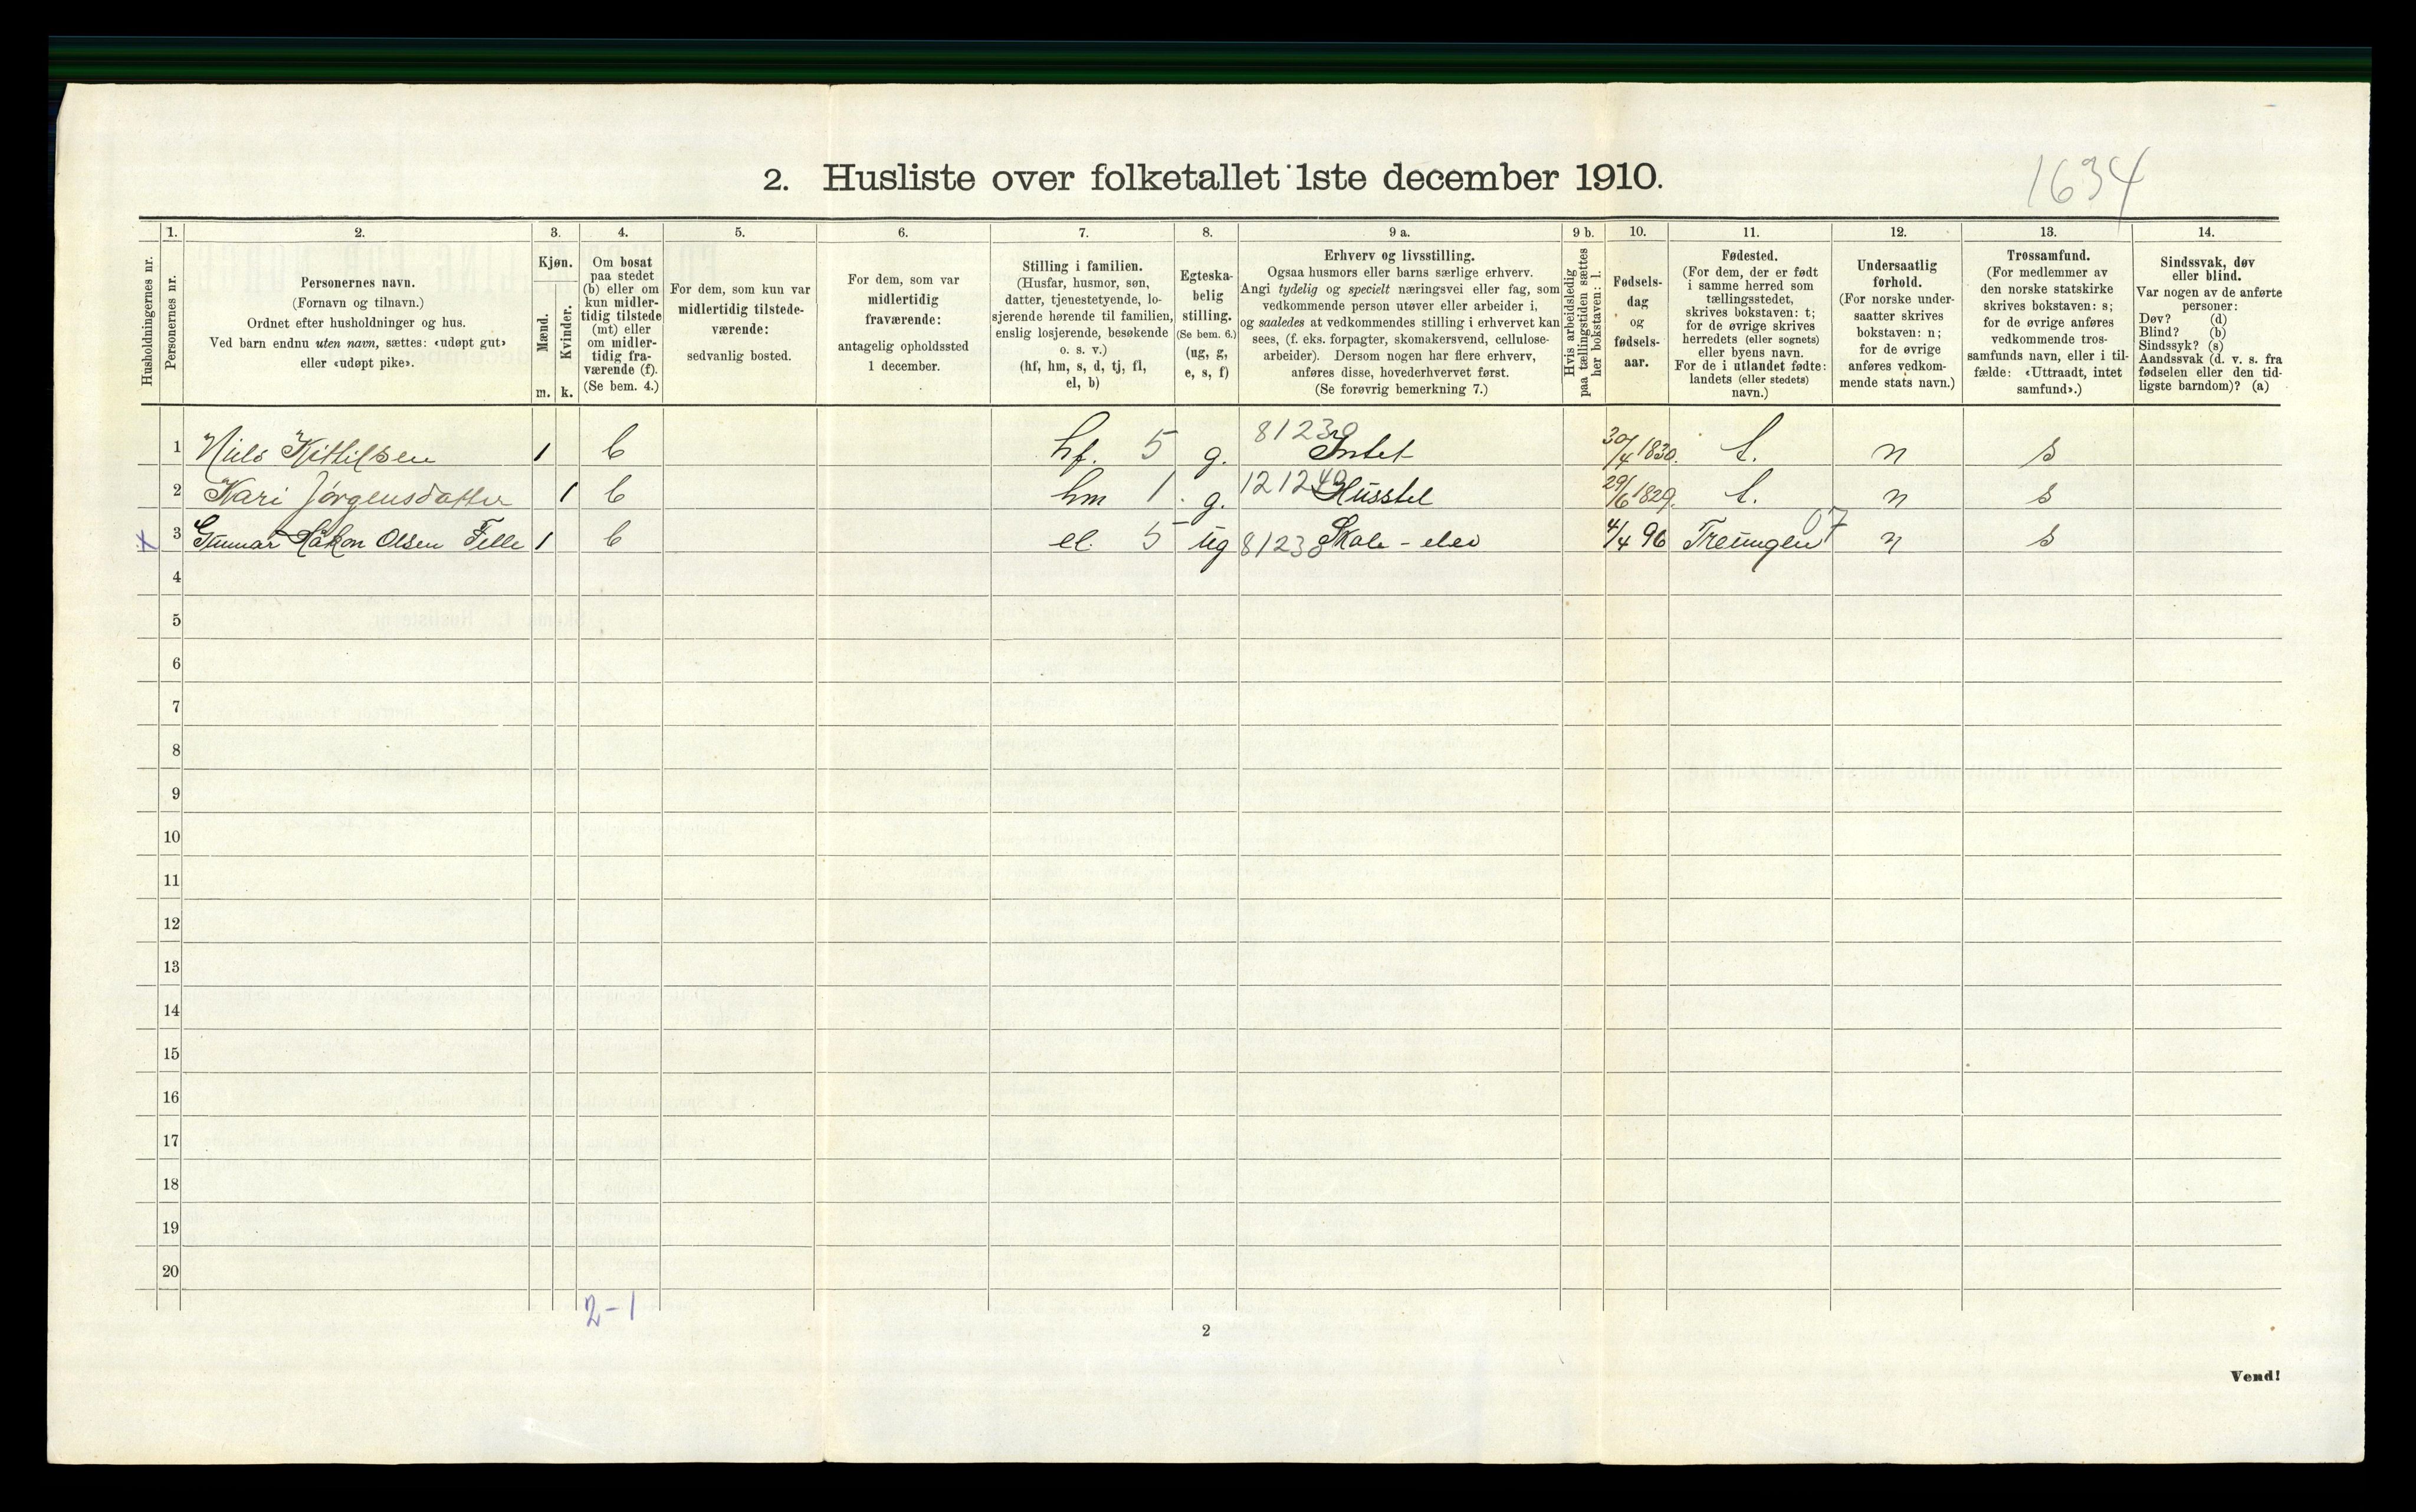 2. Husliste over folketallet 1ste december 1910.
1634
Husholdningernes nr.
1. Personernes nr.
2. Personernes navn.
(Fornavn og tilnavn.)
Ordnet efter husholdninger og hus.
Ved barn endnu uten navn, sættes: «udøpt gut»
eller «udøpt pike».
3. Kjøn.
Mænd. m.
Kvinder. k.
4. Om bosat
paa stedet
(b) eller om
kun midler-
tidig tilstede
(mt) eller
om midler-
tidig fra-
værende (f).
(Se bem. 4.)
5. For dem, som kun var
midlertidig tilstede-
værende:
sedvanlig bosted.
6. For dem, som var
midlertidig
fraværende:
antagelig opholdssted
1 december.
7. Stilling i familien.
(Husfar, husmor, søn,
datter, tjenestetyende, lo-
sjerende hørende til familien,
enslig losjerende, besøkende
o. s. v.)
(hf, hm, s, d, tj, fl,
el, b)
8. Egteska-
belig
stilling.
(Se bem. 6.)
(ug, g,
e, s, f)
9 a. Erhverv og livsstilling.
Ogsaa husmors eller barns særlige erhverv.
Angi tydelig og specielt næringsvei eller fag, som
vedkommende person utøver eller arbeider i,
og saaledes at vedkommendes stilling i erhvervet kan
sees, (f. eks. forpagter, skomakersvend, cellulose-
arbeider). Dersom nogen har flere erhverv,
anføres disse, hovederhvervet først.
(Se forøvrig bemerkning 7.)
9 b. Hvis arbeidsledig
paa tællingstiden sættes
her bokstaven: l.
10. Fødsels-
dag
og
fødsels-
aar.
11. Fødested.
(For dem, der er født
i samme herred som
tællingsstedet,
skrives bokstaven: t;
for de øvrige skrives
herredets (eller sognets)
eller byens navn.
For de i utlandet fødte:
landets (eller stedets)
navn.)
12. Undersaatlig
forhold.
(For norske under-
saatter skrives
bokstaven: n;
for de øvrige
anføres vedkom-
mende stats navn.)
13. Trossamfund.
(For medlemmer av
den norske statskirke
skrives bokstaven: s;
for de øvrige anføres
vedkommende tros-
samfunds navn, eller i til-
fælde: «Uttraadt, intet
samfund».)
14. Sindssvak, døv
eller blind.
Var nogen av de anførte
personer:
Døv? (d)
Blind? (b)
Sindssyk? (s)
Aandssvak (d. v. s. fra
fødselen eller den tid-
ligste barndom)? (a)
1 Nils Kittilsen 1 b hf. 5 g. 81230 Intet 30/4 1830. t. n s
2 Kari Jørgensdatter 1 b hm 1. g. 121240 Husstel 29/6 1829. t. n s
x 3 Gunnar Håkon Olsen Felle 1 b el. 5 ug 81230 Skole-elev 4/4 96 Treungen 07 n s
4
5
6
7
8
9
10
11
12
13
14
15
16
17
18
19
20
2-1
2
Vend!